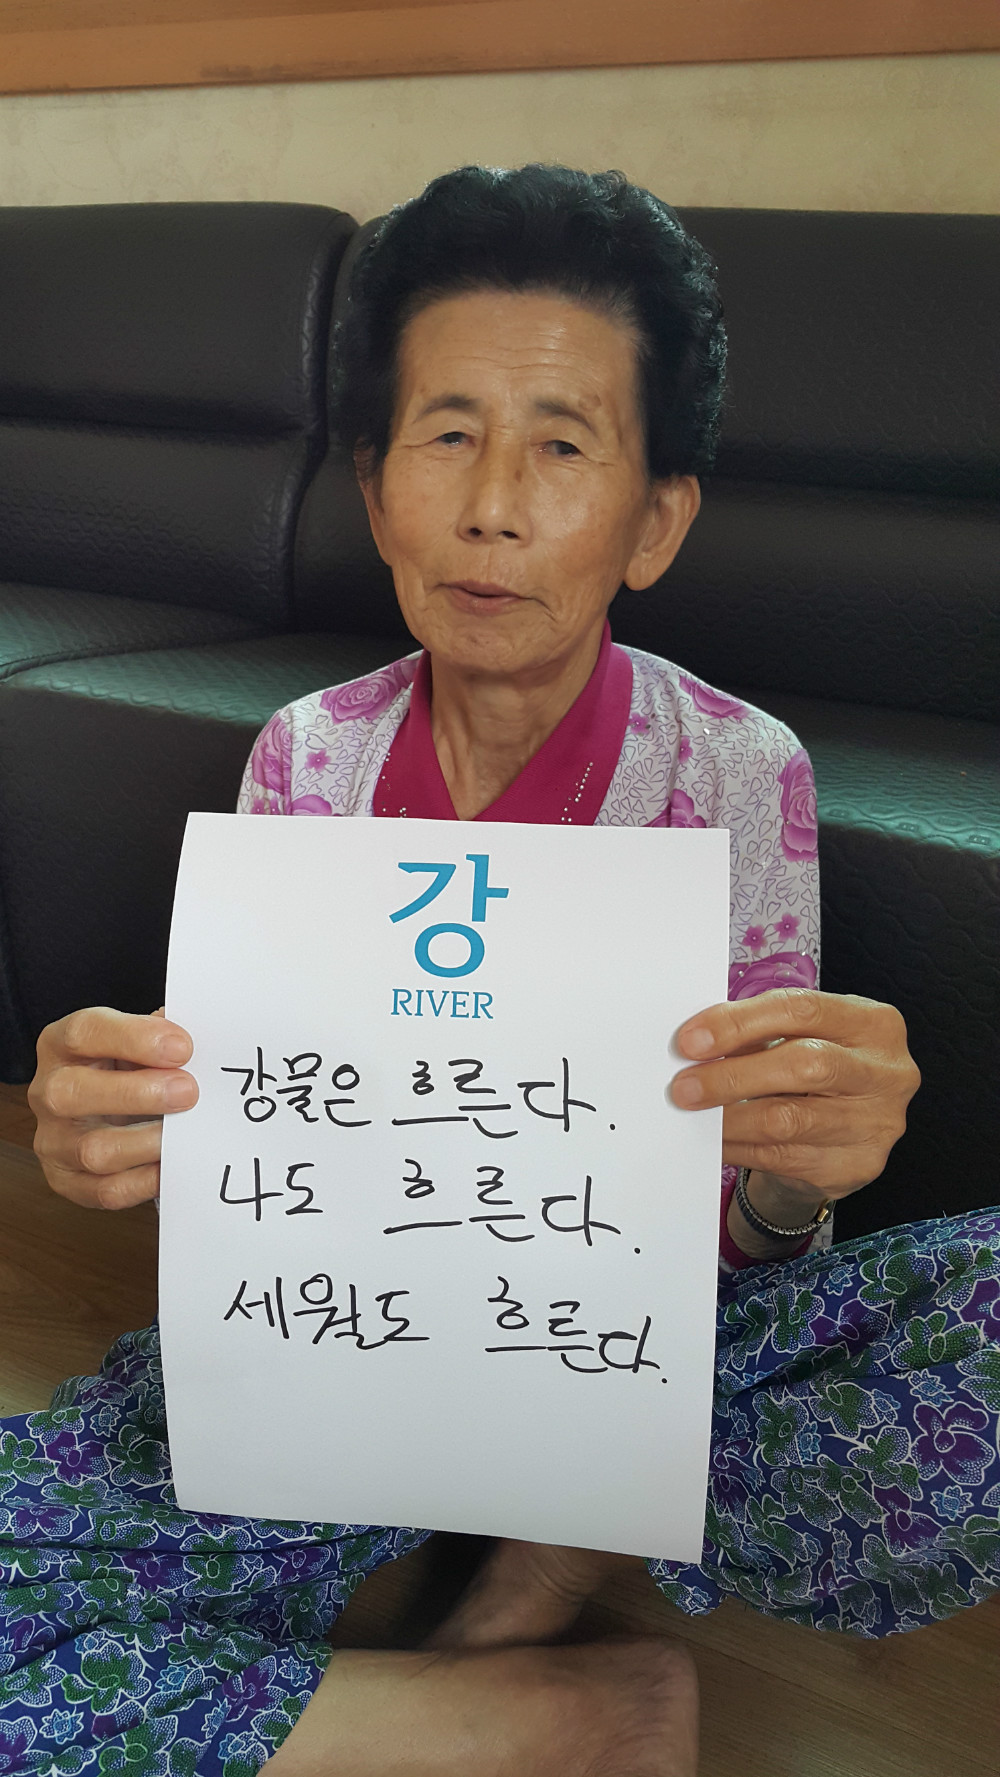 강
RIVER
강물은 흐른다.
나도 흐른다.
세월도 흐른다.